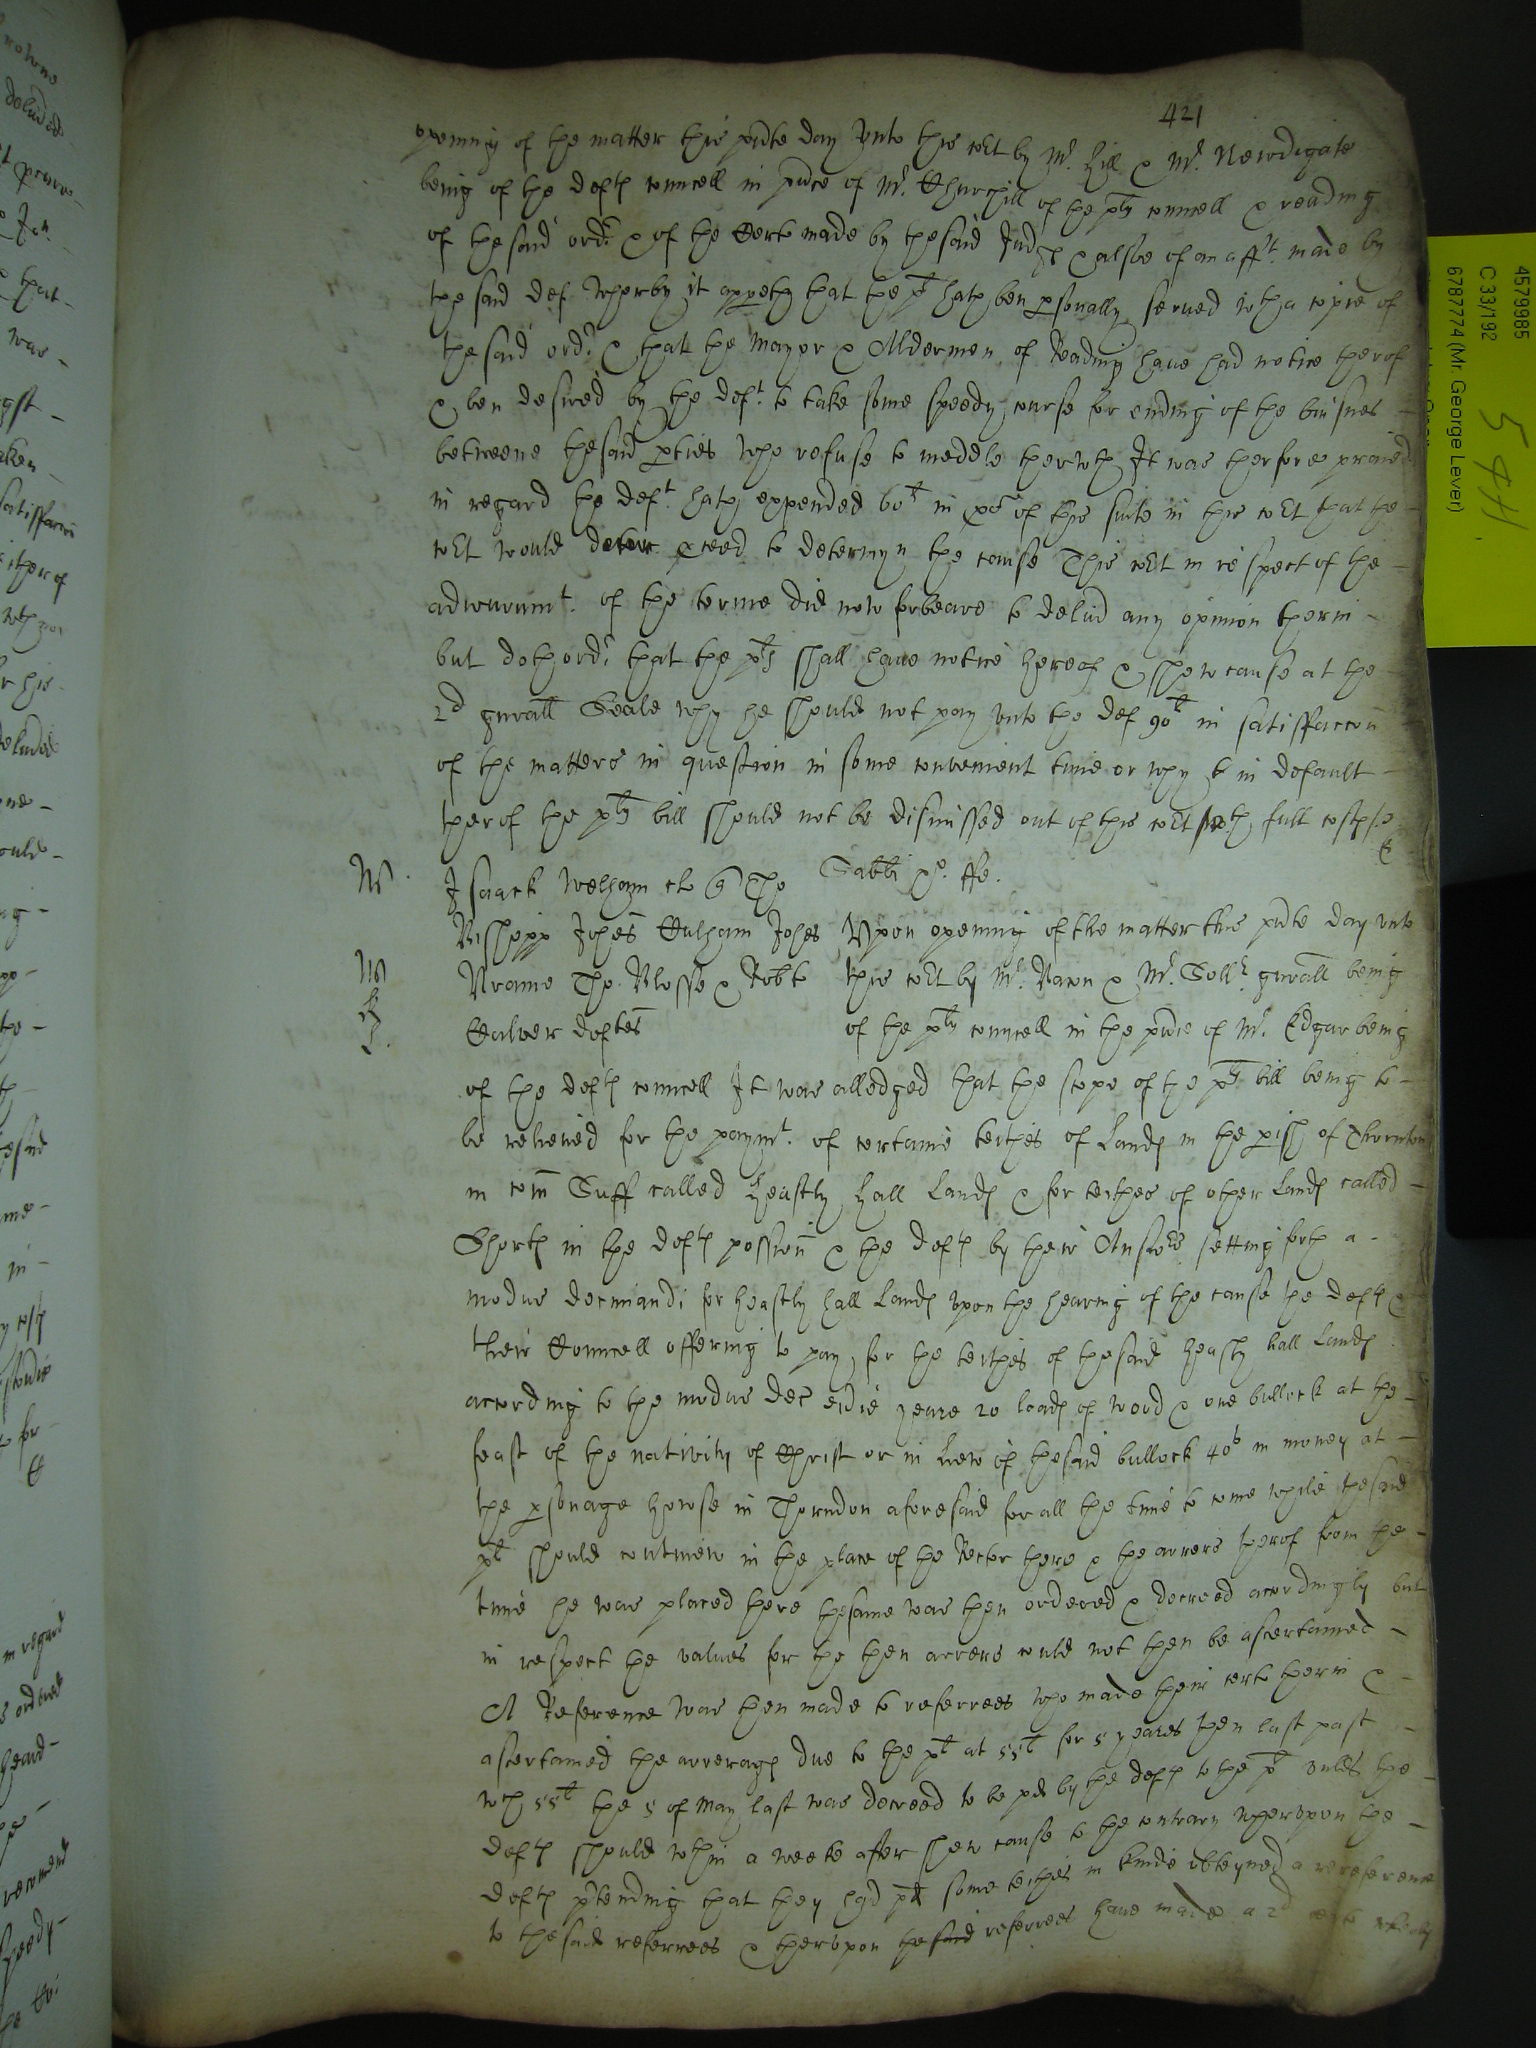 421
opening of the matter this p'nte day vnto this Co't by Mr. Hill & Mr. Newdigate
being of the defts councell in p'nce of Mr. Churchill of the plts councell & reading
of the said ordr. & of the Certe made by the said Judge & alsoe of an afft. made by
the said def. wherby it appeth that the plt hath ben psonally serued wth a copie of
the said ordr. & that the Mayor & Aldermen of Reading haue had notice therof
& ben desired by the deft. to take some speedy course for ending of the buisnes
betweene the said pties who refuse to meddle therwth It was therfore praied
in regard the deft. hath expended 60l in of this suite in this Co't that the
Co't would pceed to determyn the cause This Co't in respect of the
adiournmt. of the terme did now forbeare to deliu'd any opinion therin
but doth ordr. that the plt shall haue notice hereof & shew cause at the
2d gen'all Seale why he should not pay vnto the def 90l in satisfaccon
of the matters in question in some convenient time or why in default
therof the plts bill should not be dismissed out of this Co't wth full costs
Sabbi ffe.
Isaack Welham Tho
Bishopp Johes Culham Johes Vpon opening of the matter this p'nte day vnto
Brame Tho. Blosse & Robt this Co't by Mr. Bacon & Mr. Sollr. gen'all being
Calver deftes of the plts councell in the p'nce of Mr. Edgar being
of the defts councell It was alledged that the scope of the plts bill being to
be relieued for the paymt. of certaine tiethes of Lands in the pish of Thornton
in com Suff called Heastly Hall Lands & for tiethes of other Lands called
Shorts in the defts possion & the defts by their Answers setting forth a
modus decimandi for heastly hall Lands vpon the hearing of the cause the defts &
their Councell offering to pay for the tiethes of the said heastly hall Lands
according to the modus dec eu'ie yeare 20 loads of wood & one bullock at the
feast of the nativity of Christ or in liew of the said bullock 40s in money at
the psonage howse in Thorndon aforesaid for all the time to come while the said
plt should contineu in the place of the Rector there & the arrers therof from the
time he was placed there the same was then ordered & decreed accordingly but
in respect the values for the then arrers could not then be ascertained
A Reference was then made to referrees who made their certe therin &
ascertained the arrerags due to the plt at 55l for 5 yeares then last past
wch 55l the 5 of May last was decreed to be pd by the defts to the plt vnles the
defts should wthin a weeke after shew cause to the contrary wherevpon the
defts p'tending that they had pd some tiethes in kinde obteyned a rereference
to the said referrees & thervpon the said referrees haue made a 2d certe wherby
4579985
C 33/192
6787774 (Mr. George Lever)